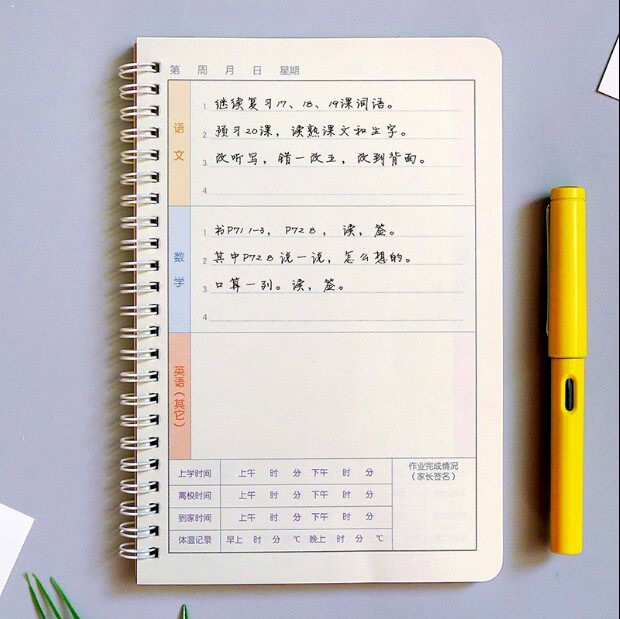 第 周 月 日 星期
语文
1. 继续复习17、18、19课词语。
2. 预习20课，读熟课文和生字。
3. 改听写，错一改五，改到背面。
4.
数学
1. 书P71 1-3， P72 8， 读，签。
2. 其中P72 8 说一说，怎么想的。
3. 口算一列。读，签。
4.
英语（其它）
上学时间 上午 时 分 下午 时 分
离校时间 上午 时 分 下午 时 分
到家时间 上午 时 分 下午 时 分
体温记录 早上 时 分 ℃ 晚上 时 分 ℃
作业完成情况
（家长签名）